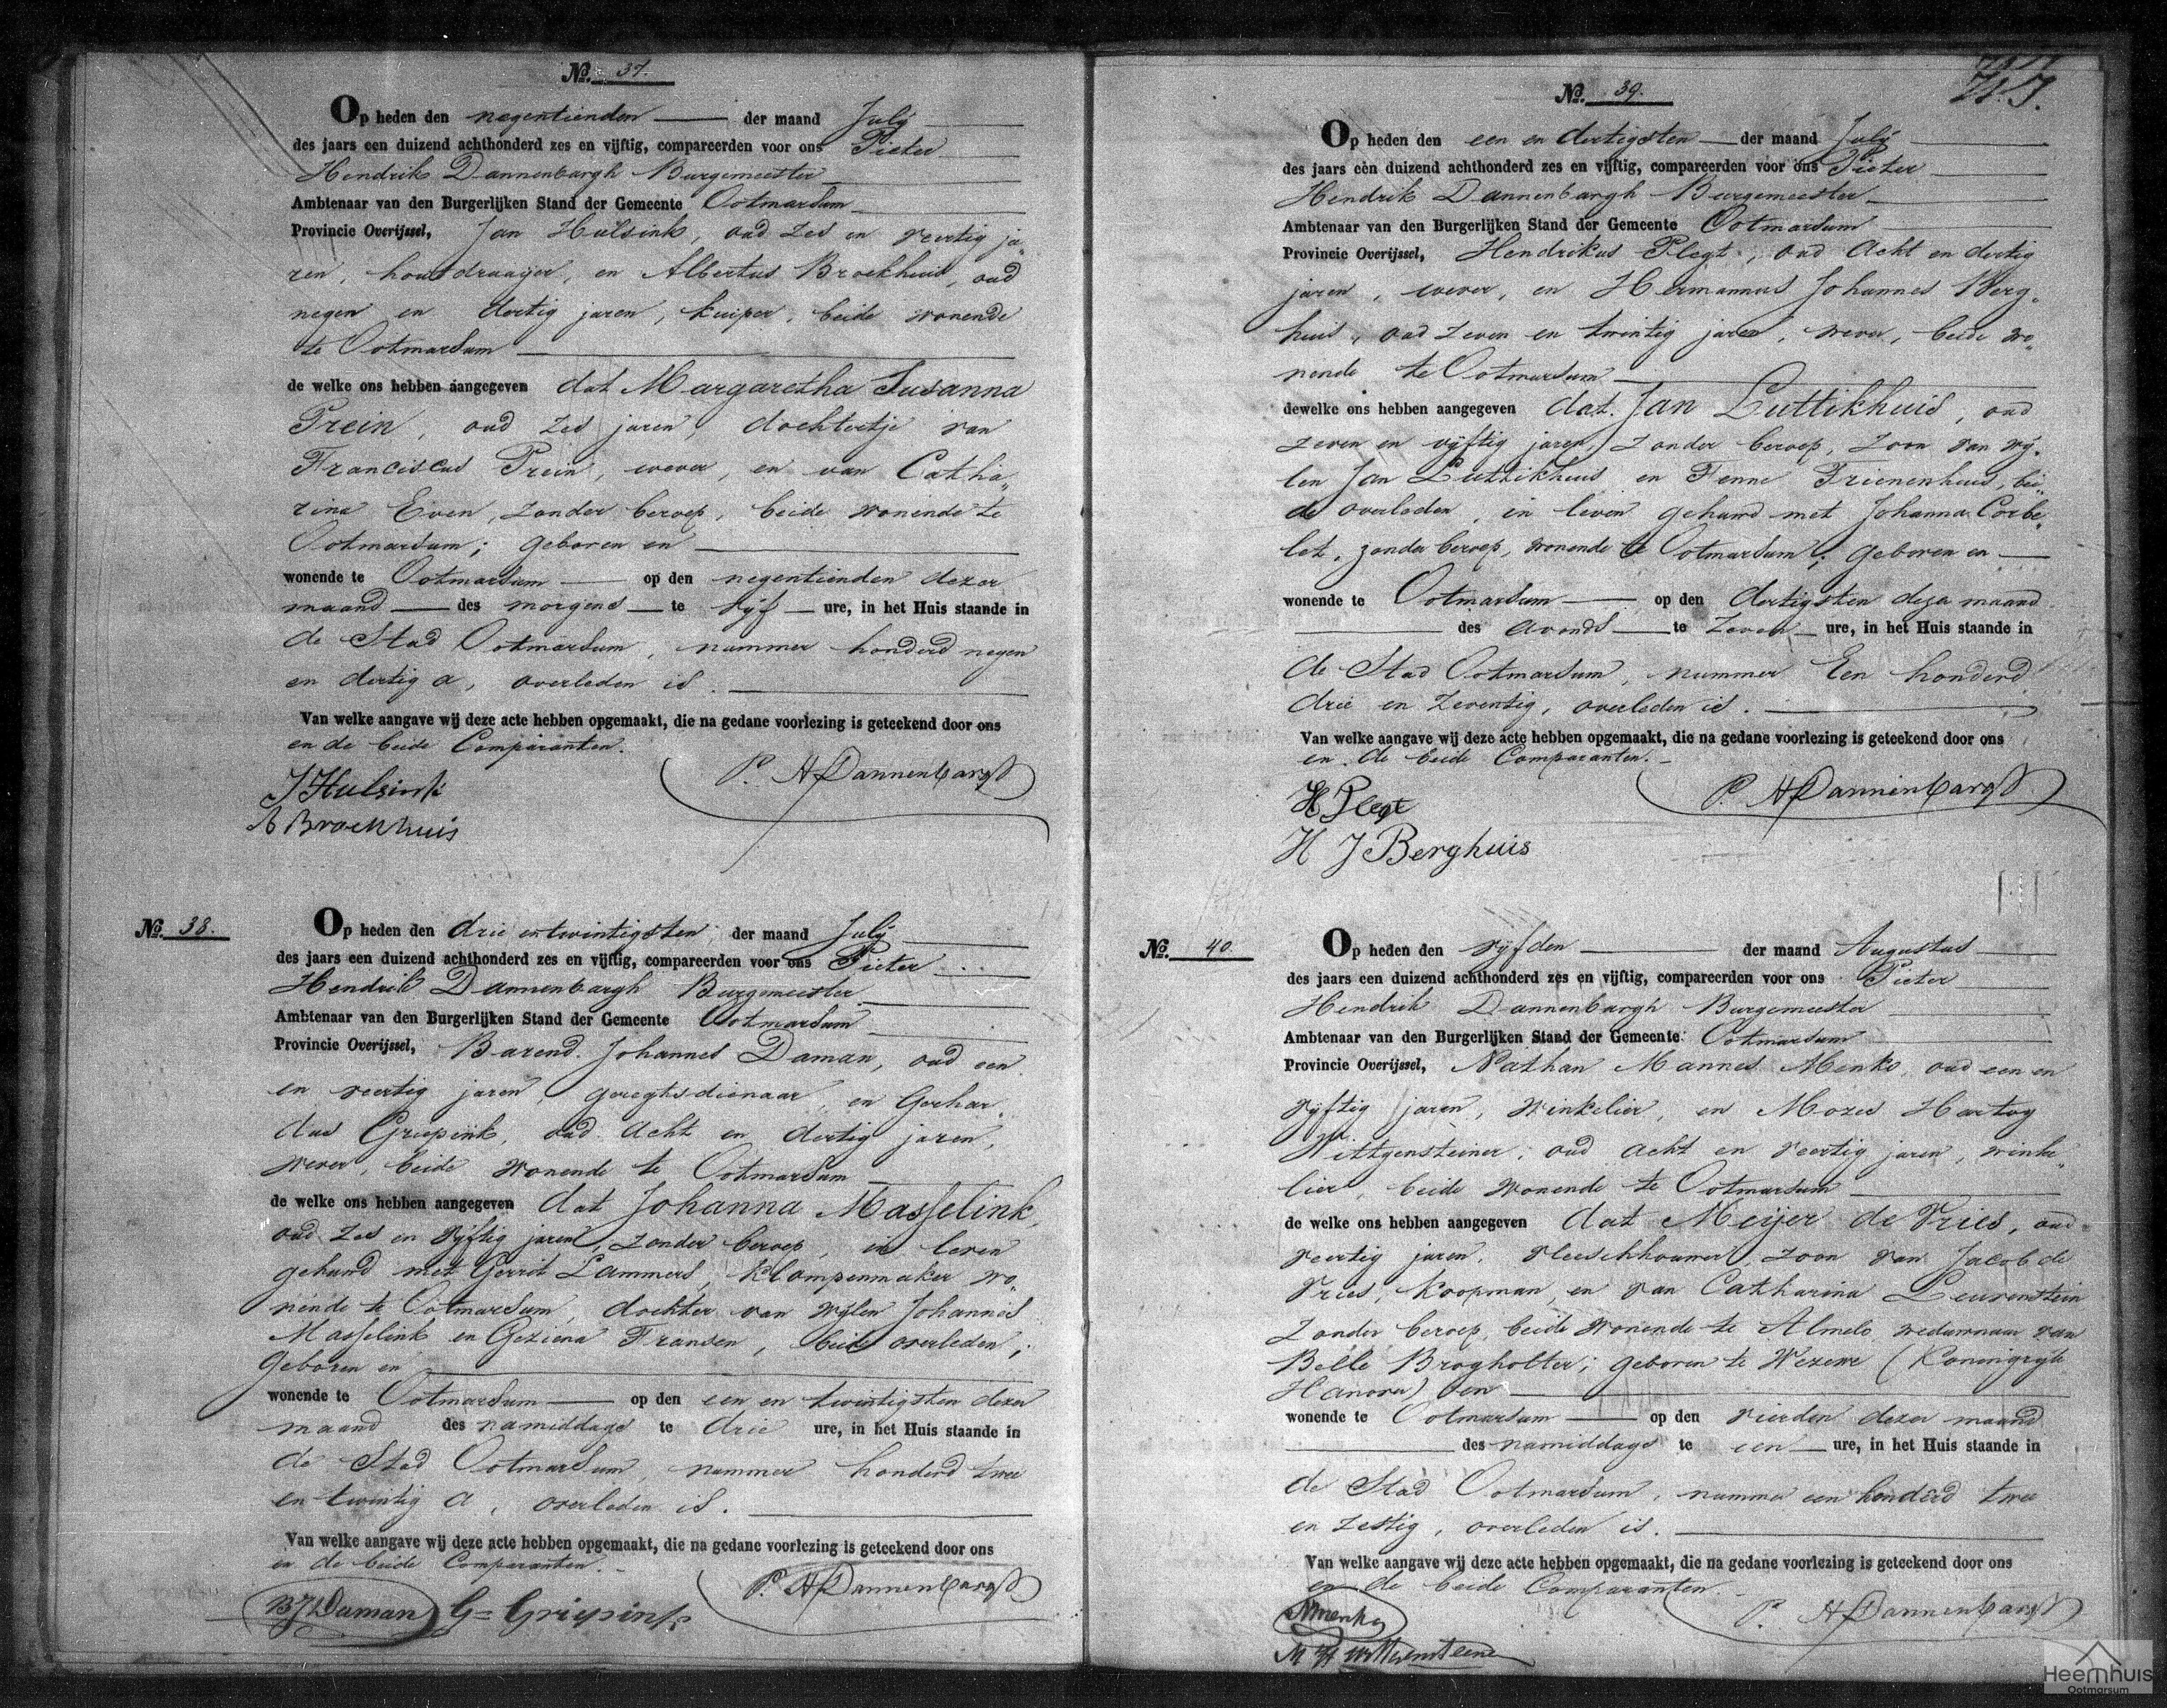 No. 37.
Op heden den negentienden der maand July
des jaars een duizend achthonderd zes en vijftig, compareerden voor ons Pieter
Hendrik Dannenbargh Burgemeester
Ambtenaar van den Burgerlijken Stand der Gemeente Ootmarsum
Provincie Overijssel, Jan Hulsink, oud zes en veertig ja„
ren, houtdraaijer, en Albertus Broekhuis, oud
negen en dertig jaren, kuiper, beide wonende
te Ootmarsum
de welke ons hebben aangegeven dat Margaretha Susanna
Prein, oud zes jaren, dochtertje van
Franciscus Prein, wever, en van Catha„
rina Even, zonder beroep, beide wonende te
Ootmarsum; geboren en
wonende te Ootmarsum op den negentienden dezer
maand des morgens te vijf ure, in het Huis staande in
de Stad Ootmarsum, nummer honderd negen
en dertig a, overleden is.
Van welke aangave wij deze acte hebben opgemaakt, die na gedane voorlezing is geteekend door ons
en de beide Comparanten.
P. H Dannenbargh
J Hulsink
A Broekhuis
No. 38.
Op heden den drie en twintigsten der maand July
des jaars een duizend achthonderd zes en vijftig, compareerden voor ons Pieter
Hendrik Dannenbargh Burgemeester
Ambtenaar van den Burgerlijken Stand der Gemeente Ootmarsum
Provincie Overijssel, Barend Johannes Daman, oud een
en veertig jaren, gereghtsdienaar, en Gerhar„
dus Griepink, oud acht en dertig jaren,
wever, beide wonende te Ootmarsum
de welke ons hebben aangegeven dat Johanna Masselink,
oud zes en vijftig jaren, zonder beroep, in leven
gehuwd met Gerrit Lammers, klompenmaker wo„
nende te Ootmarsum, dochter van wijlen Johannes
Masselink en Geziena Fransen, beide overleden;
geboren en
wonende te Ootmarsum op den een en twintigsten dezer
maand des namiddags te drie ure, in het Huis staande in
de Stad Ootmarsum, nummer honderd twee
en twintig a, overleden is.
Van welke aangave wij deze acte hebben opgemaakt, die na gedane voorlezing is geteekend door ons
en de beide Comparanten.
P. H Dannenbargh
BJ Daman G= Griepink
No. 39.
Op heden den een en dertigsten der maand July
des jaars een duizend achthonderd zes en vijftig, compareerden voor ons Pieter
Hendrik Dannenbargh Burgemeester
Ambtenaar van den Burgerlijken Stand der Gemeente Ootmarsum
Provincie Overijssel, Hendrikus Plegt, oud Acht en dertig
jaren, wever, en Hermannus Johannes Berg„
huis, oud zeven en twintig jaren, wever, beide wo„
nende te Ootmarsum
dewelke ons hebben aangegeven dat Jan Luttikhuis, oud
zeven en vijftig jaren, zonder beroep, zoon van wij„
len Jan Luttikhuis en Fenne Frienenhuis, bei„
de overleden, in leven gehuwd met Johanna Corbe„
let, zonder beroep, wonende te Ootmarsum; geboren en
wonende te Ootmarsum op den dertigsten dezer maand
des avonds te zeven ure, in het Huis staande in
de Stad Ootmarsum, nummer Een honderd
drie en zeventig, overleden is.
Van welke aangave wij deze acte hebben opgemaakt, die na gedane voorlezing is geteekend door ons
en de beide Comparanten.
P. H Dannenbargh
H Plegt
H J Berghuis
No. 40.
Op heden den vijfden der maand Augustus
des jaars een duizend achthonderd zes en vijftig, compareerden voor ons Pieter
Hendrik Dannenbargh Burgemeester
Ambtenaar van den Burgerlijken Stand der Gemeente Ootmarsum
Provincie Overijssel, Nathan Mannes Menko, oud een en
vijftig jaren, winkelier, en Mozes Hartog
Wittgensteiner, oud acht en veertig jaren, winke„
lier, beide wonende te Ootmarsum
de welke ons hebben aangegeven dat Meijer de Vries, oud
veertig jaren, vleeschhouwer, zoon van Jacob de
Vries, koopman, en van Catharina Leuvenstein
zonder beroep, beide wonende te Almelo, weduwnaar van
Belle Brogholter; geboren te Wezewe (Koningrijk
Hanover) en
wonende te Ootmarsum op den vierden dezer maand
des namiddags te een ure, in het Huis staande in
de Stad Ootmarsum, nummer een honderd twee
en zestig, overleden is.
Van welke aangave wij deze acte hebben opgemaakt, die na gedane voorlezing is geteekend door ons
en de beide Comparanten.
P. H Dannenbargh
NMenko
M H Wittgensteiner
Heemhuis
Ootmarsum